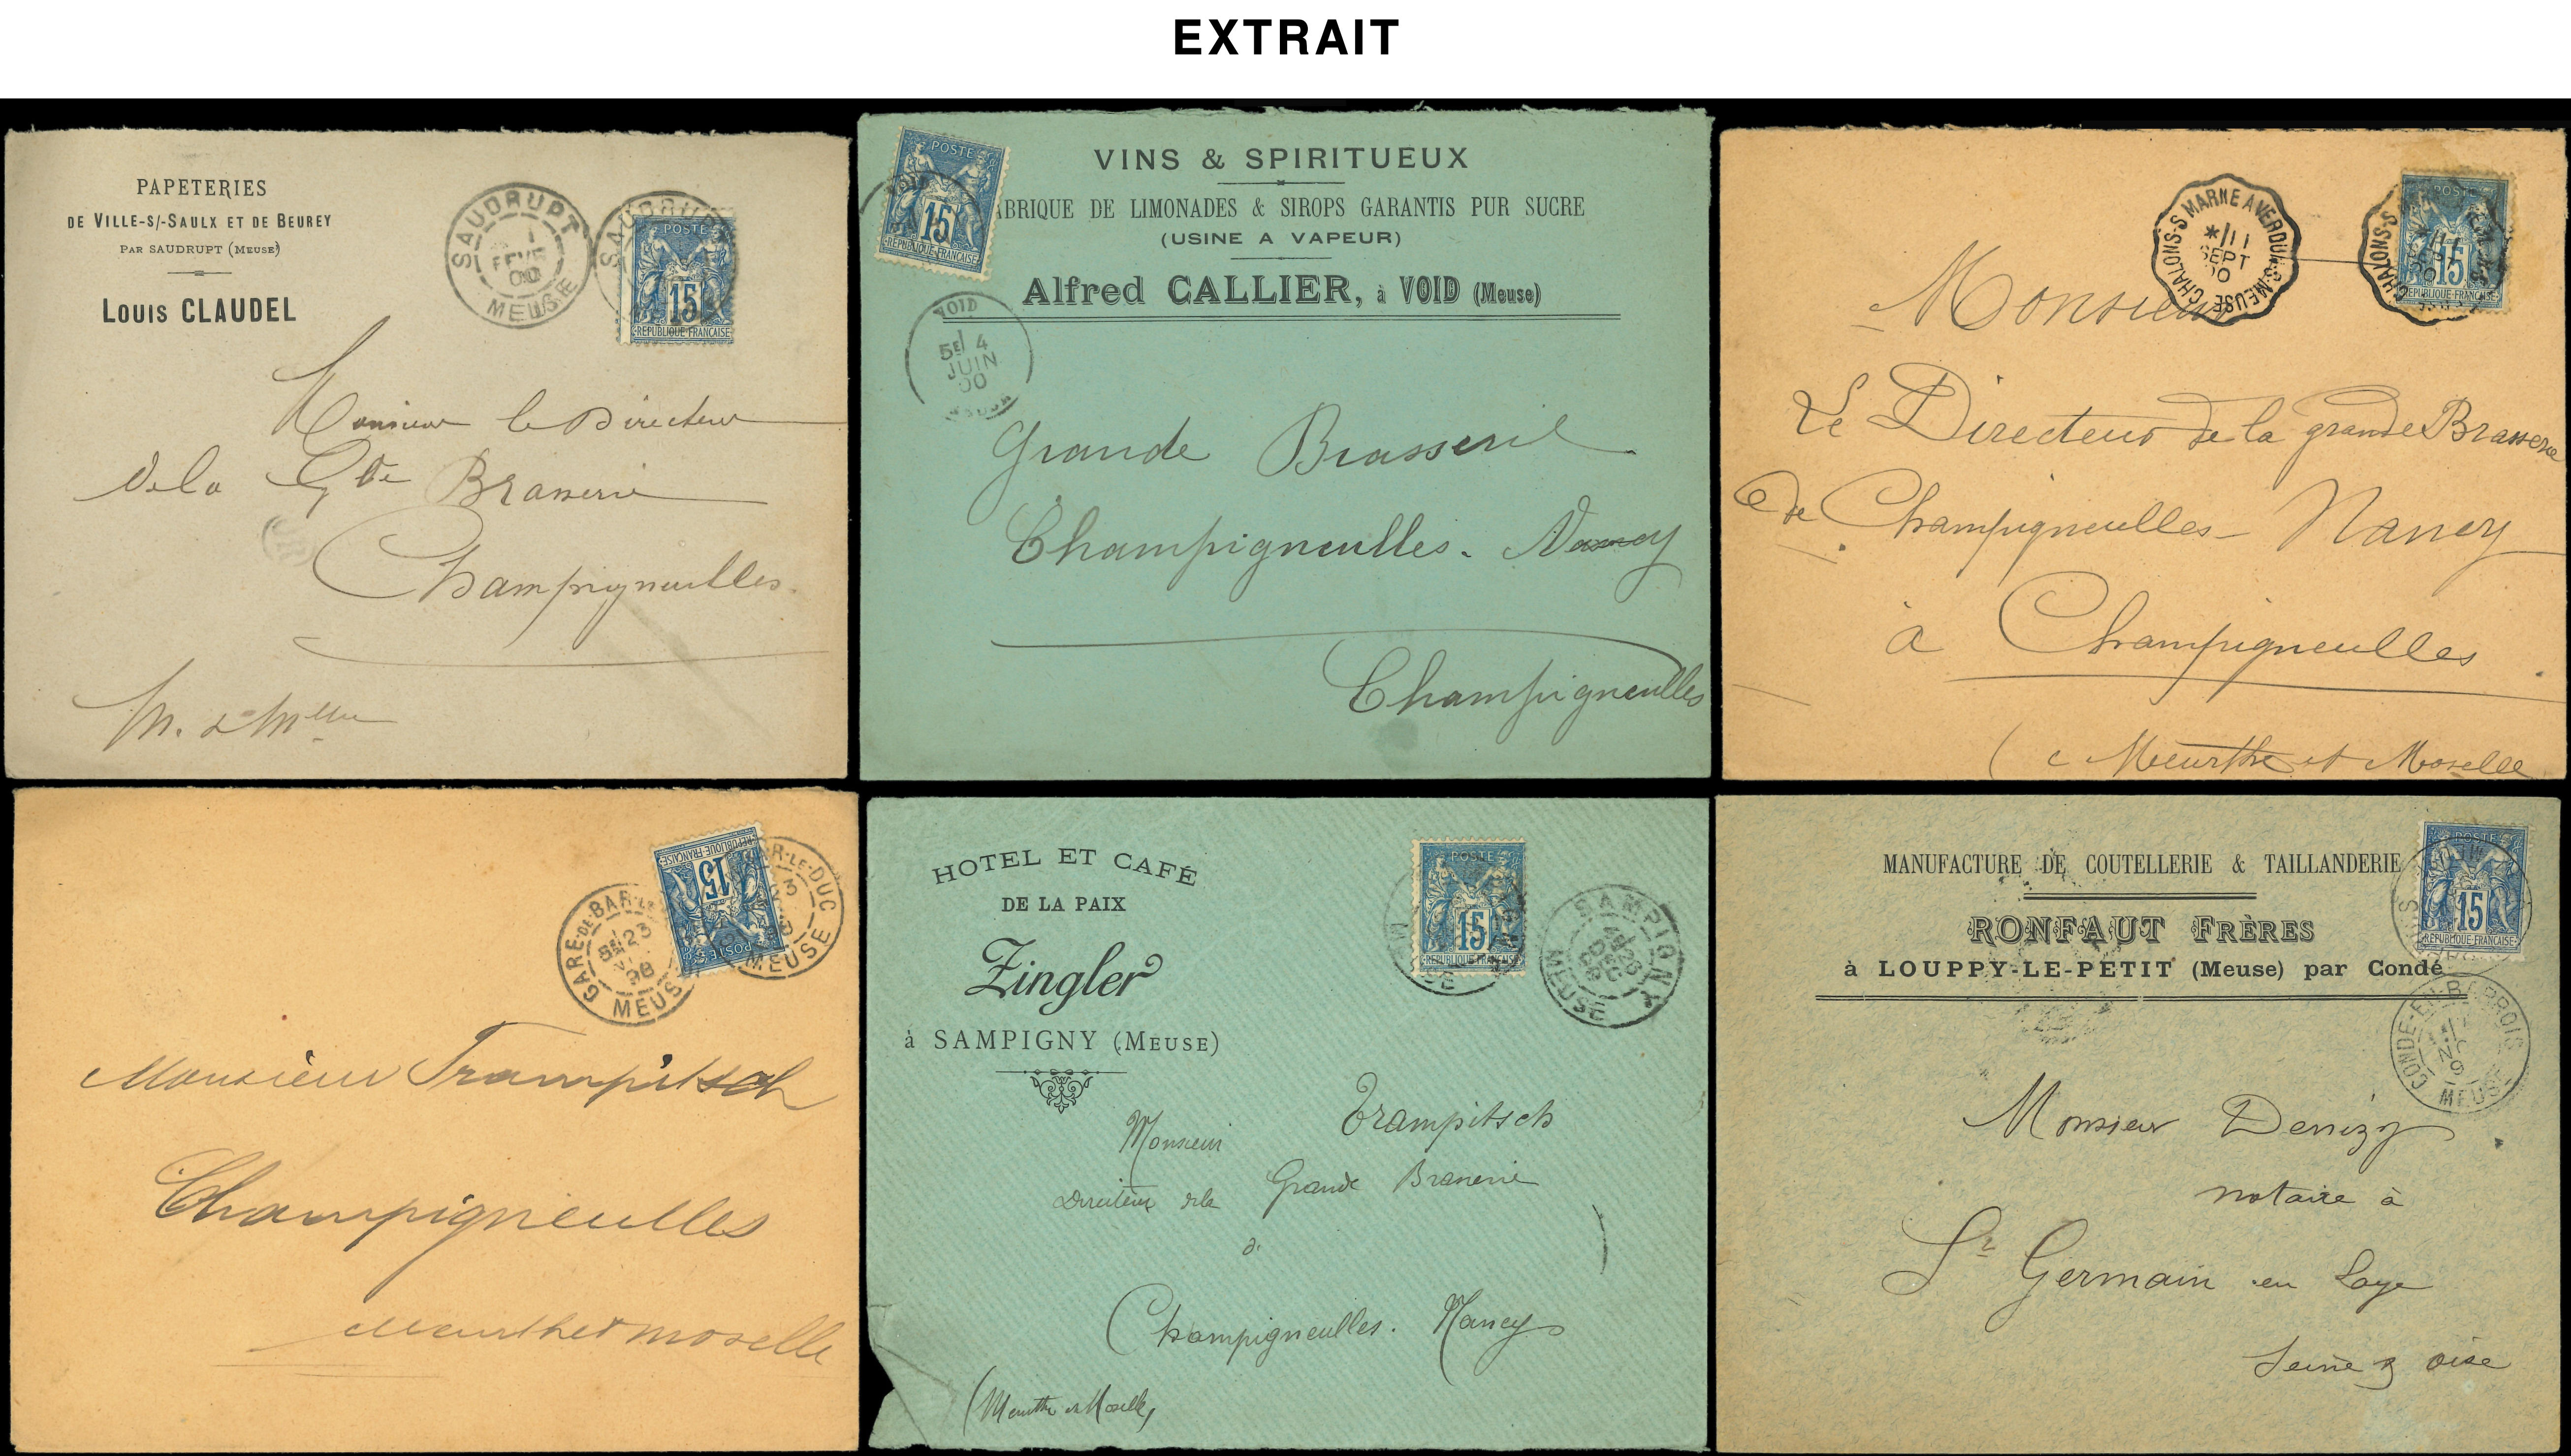 EXTRAIT
PAPETERIES
DE VILLE-S/-SAULX ET DE BEUREY
PAR SAUDRUPT (MEUSE)
LOUIS CLAUDEL
SAUDRUPT
1
FEVR
00
MEUSE
POSTE
15
REPUBLIQUE FRANÇAISE
Monsieur le Directeur
de la Gde Brasserie
Champigneulles
M. & Mlle
VINS & SPIRITUEUX
ABRIQUE DE LIMONADES & SIROPS GARANTIS PUR SUCRE
(USINE A VAPEUR)
Alfred CALLIER, à VOID (Meuse)
POSTE
15
REPUBLIQUE FRANÇAISE
VOID
5E 4
JUIN
00
Grande Brasserie
Champigneulles. Nancy
Champigneulles
CHALONS-S-MARNE A VERDUN-S-MEUSE
11
SEPT
00
POSTE
15
REPUBLIQUE FRANÇAISE
Monsieur
Le Directeur de la grande Brasserie
de Champigneulles - Nancy
à Champigneulles
(Meurthe et Moselle
GARE-DE-BAR-LE-DUC
23
98
MEUSE
POSTE
15
REPUBLIQUE FRANÇAISE
Monsieur Trampitsch
Champigneulles
Meurthe et moselle
HOTEL ET CAFÉ
DE LA PAIX
Zingler
à SAMPIGNY (MEUSE)
POSTE
15
REPUBLIQUE FRANÇAISE
SAMPIGNY
DEC
MEUSE
Monsieur Trampitsch
Directeur de la Grande Brasserie
à
Champigneulles. Nancy
(Meurthe et Moselle)
MANUFACTURE DE COUTELLERIE & TAILLANDERIE
RONFAUT FRÈRES
à LOUPPY-LE-PETIT (Meuse) par Condé
POSTE
15
REPUBLIQUE FRANÇAISE
CONDE-EN-BARROIS
MEUSE
Monsieur Denizy
notaire à
St Germain en Laye
Seine & oise